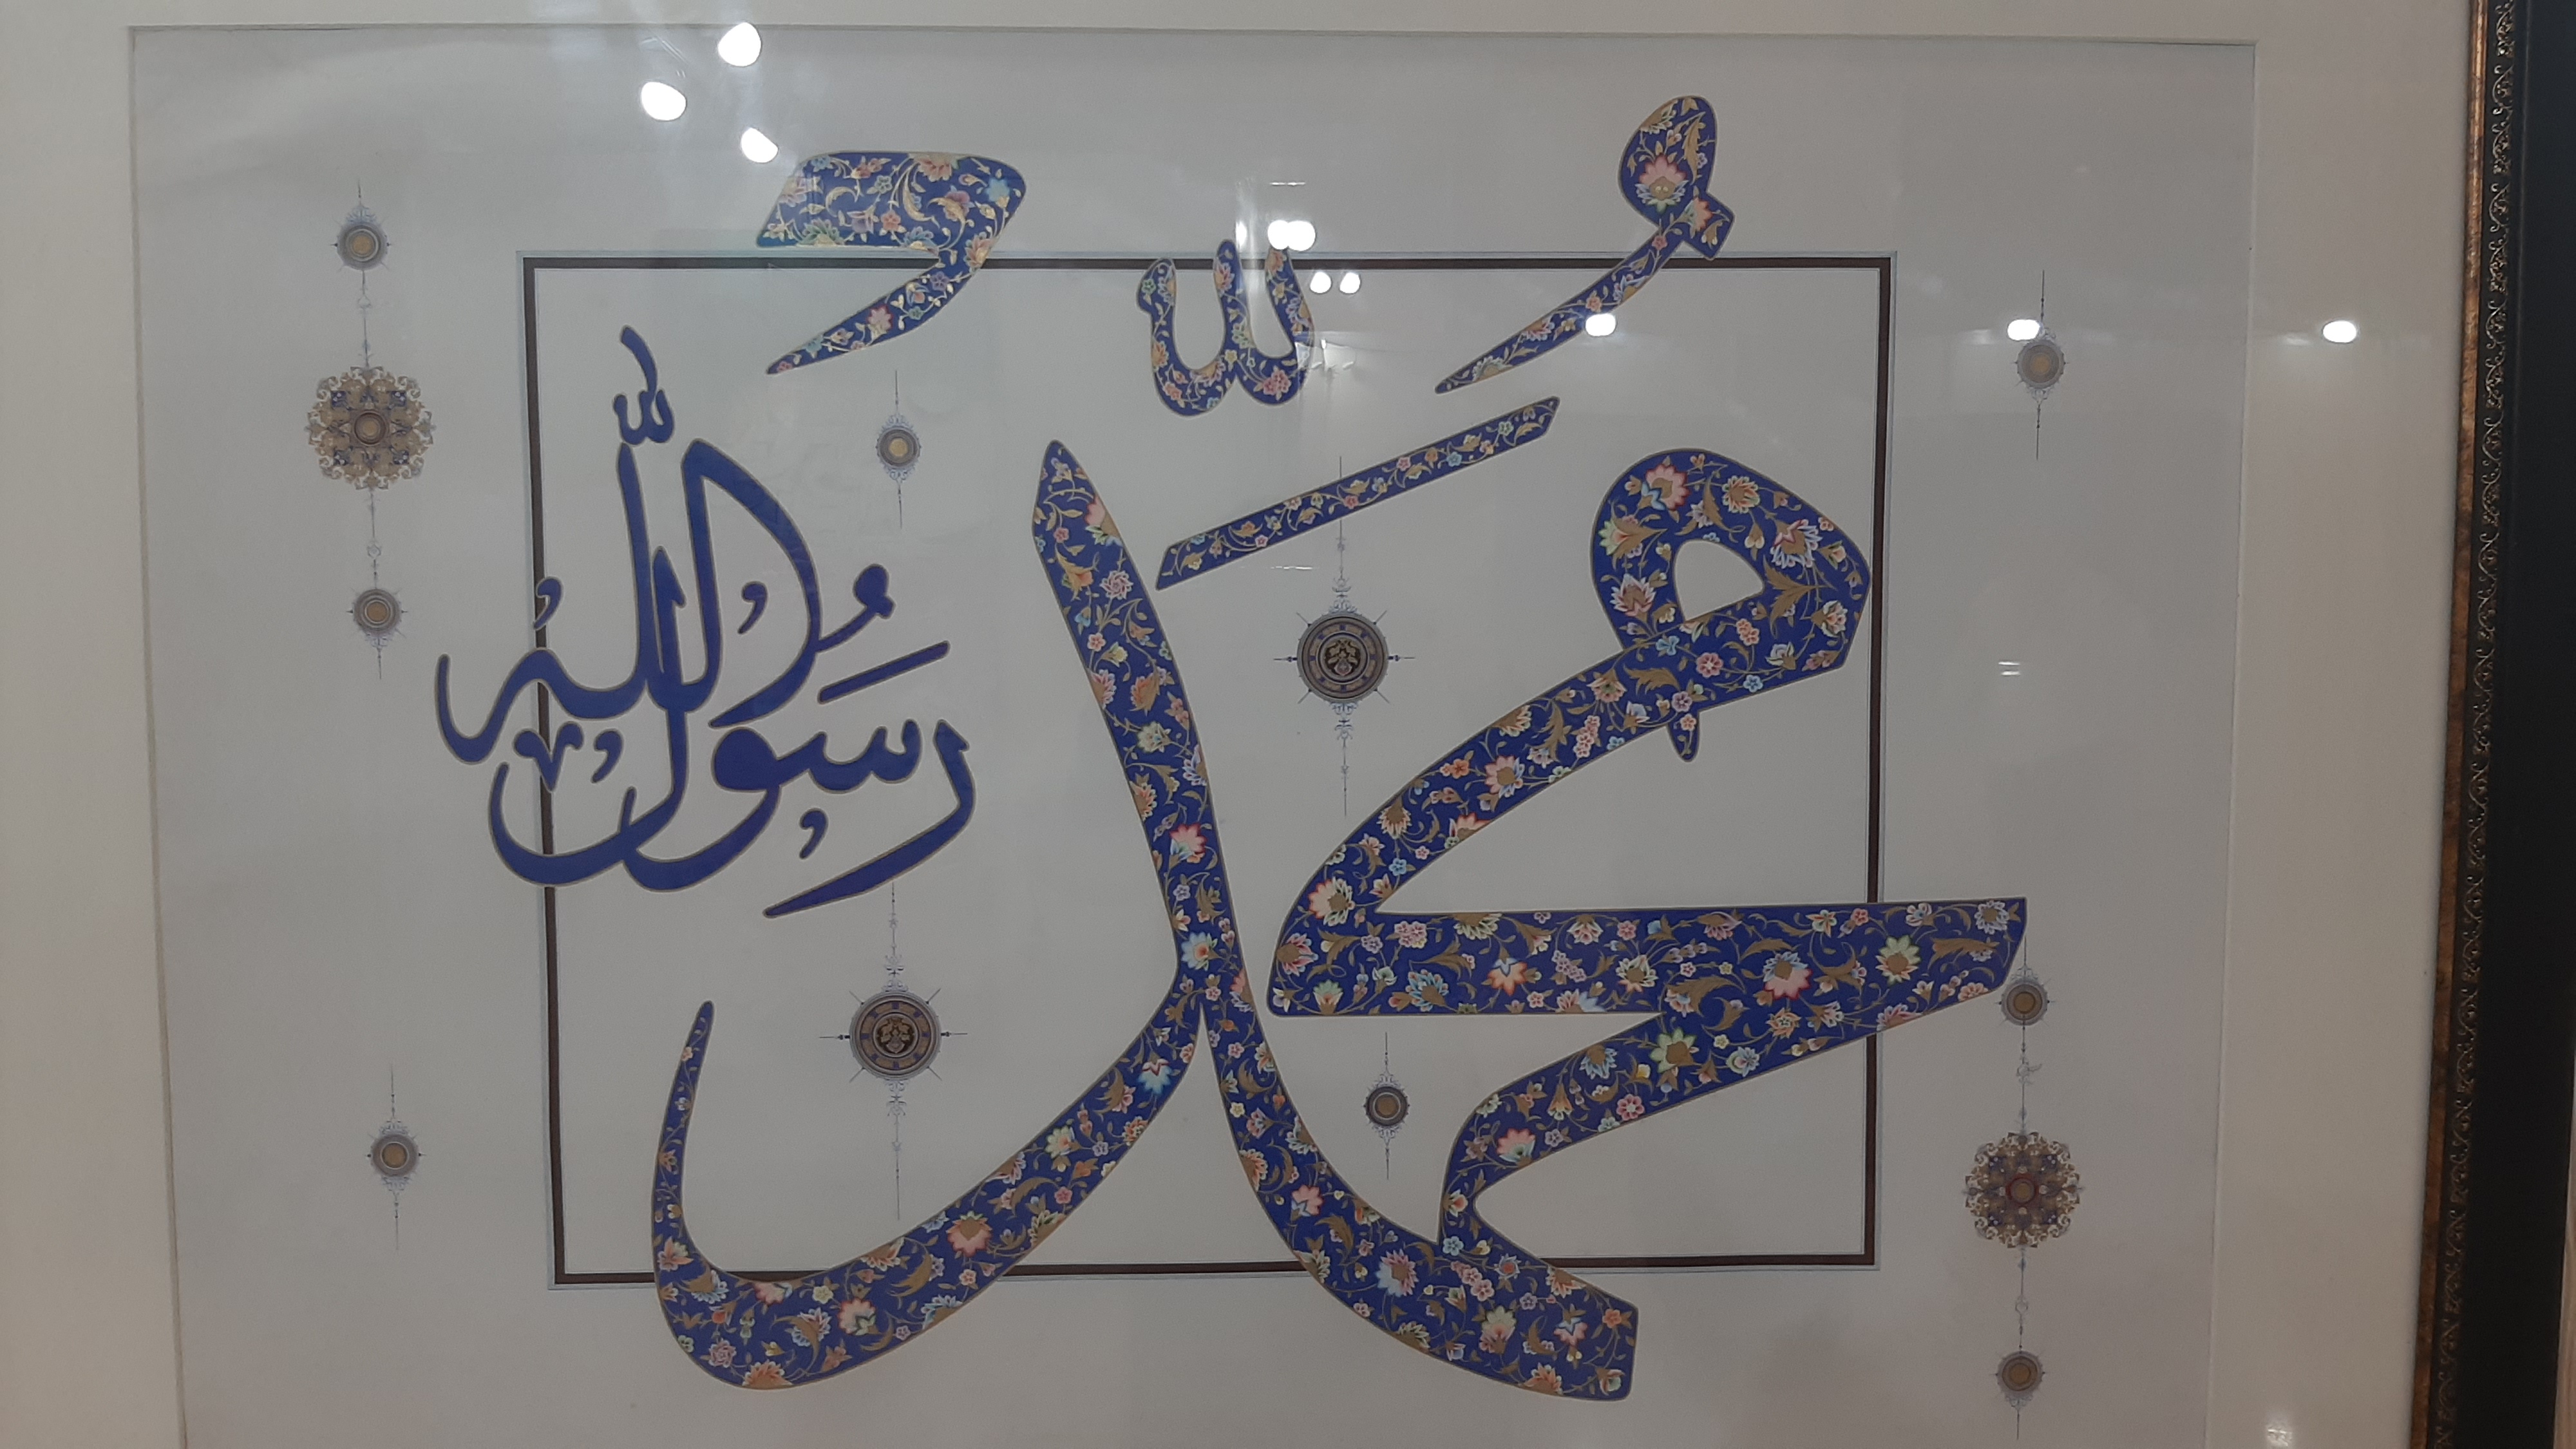 مُحَمَّدٌ
رَسُولُ اللّٰهِ